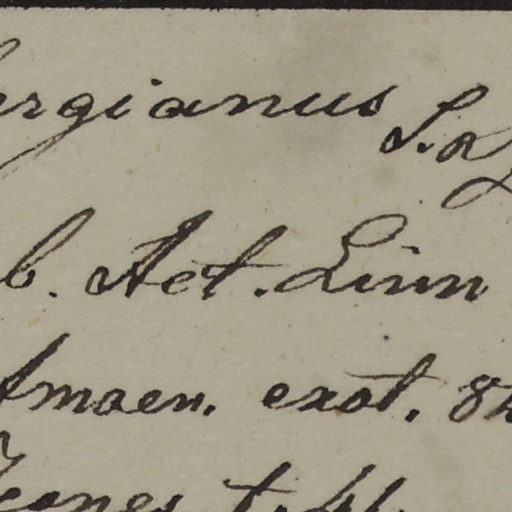 ergianus S.
b. Act. Linn
Amoen. exot. 8
Icones t. 41.